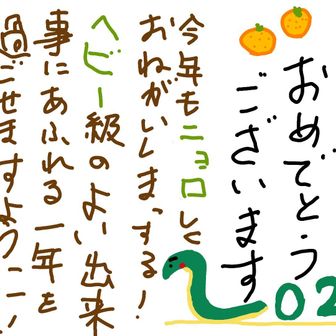 おめでとう
ございます
今年もニョロしく
おねがいしまっする!
ヘビー級のよい出来
事にあふれる一年を
過ごせますようにー!
02